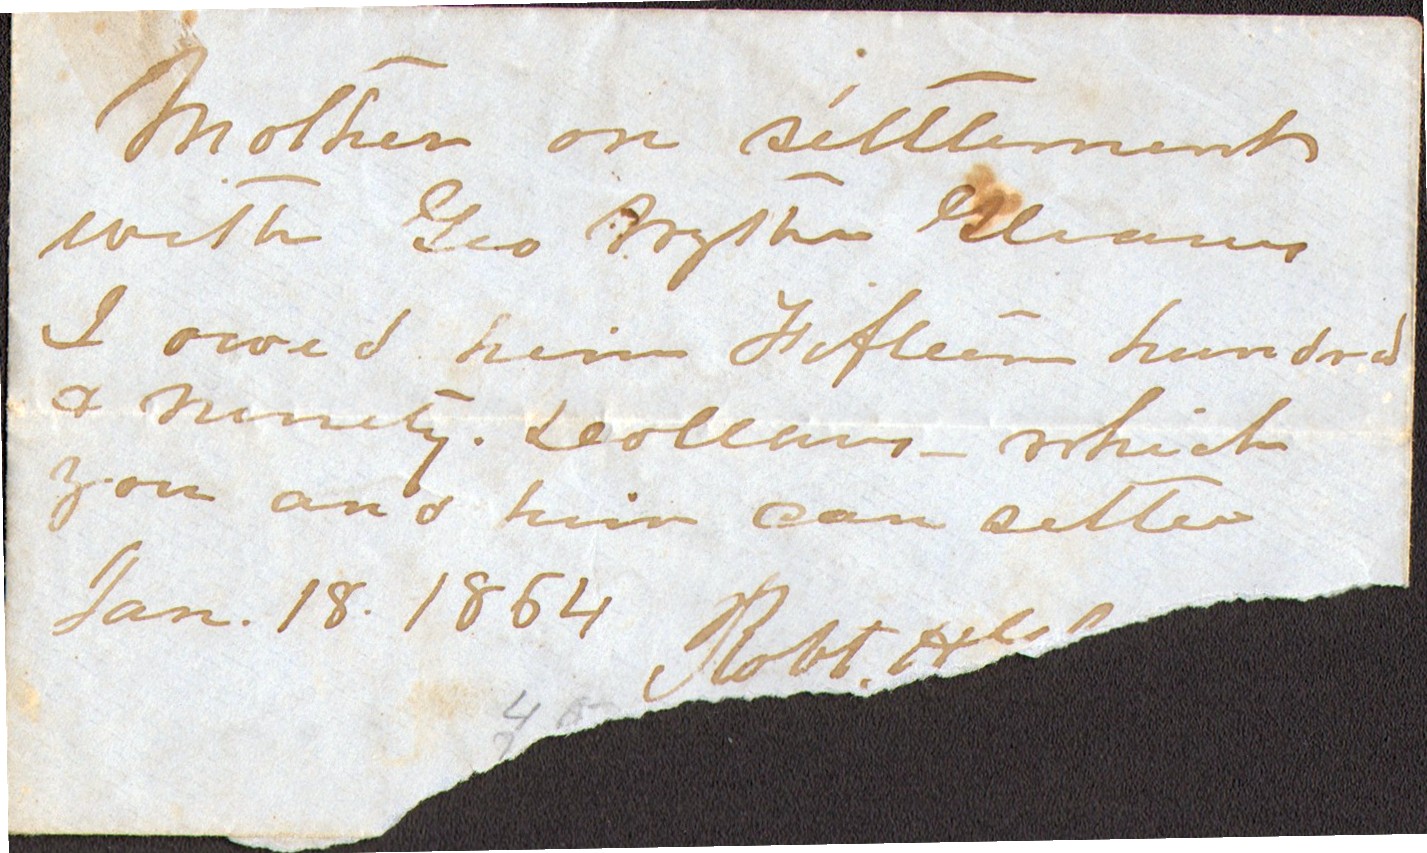 Mother on settlement
with Geo Wythe
I owed him Fifteen hundred
& Ninety. Dollars – which
you and him can settle
Jan. 18. 1864
Robt.
4